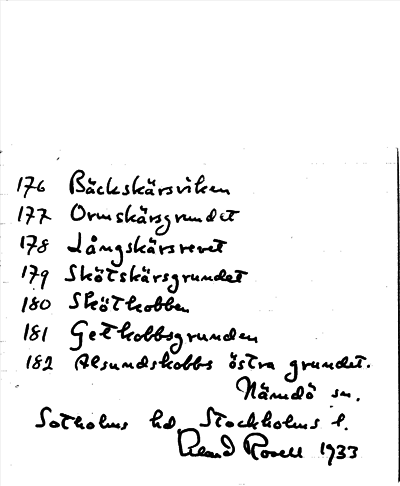 176 Bäckskärsviken
177 Ormskärsgrundet
178 Långskärsrevet
179 Skötskärsgrundet
180 Skötkobben
181 Getkobbsgrunden
182 Alsundskobbs östra grundet.
Nämdö sn.
Sotholms hd. Stockholms l.
Rosell 1933